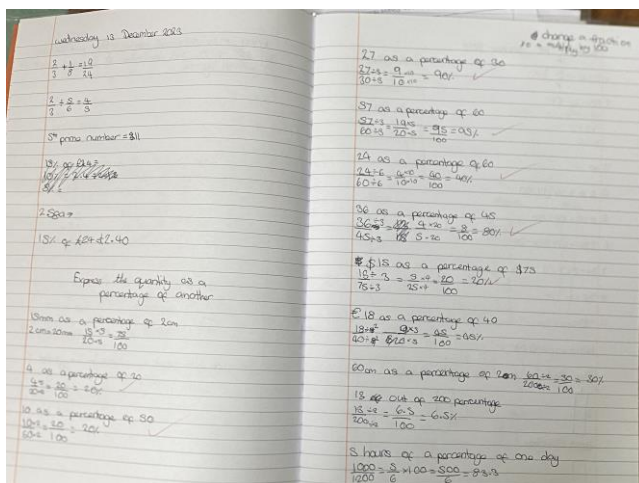 Wednesday 13 December 2023
2/3 + 1/8 = 19/24
2/3 ÷ 5/6 = 4/5
5th prime number = 11
15% of £24 =
15% of £24 £2.40
Express the quantity as a
percentage of another
15mm as a percentage of 2cm
2cm=20mm 15×5/20×5 = 75/100
4 as a percentage of 20
4×5/20×5 = 20/100 = 20%
10 as a percentage of 50
10×2/50×2 = 20/100 = 20%
change a fraction
multiply by 100
27 as a percentage of 30
27÷3/30÷3 = 9×10/10×10 = 90%
57 as a percentage of 60
57÷3/60÷3 = 19×5/20×5 = 95/100 = 95%
24 as a percentage of 60
24÷6/60÷6 = 4×10/10×10 = 40/100 = 40%
36 as a percentage of 45
36÷3/45÷3 4×20/5×20 = 8/100 = 80%
$15 as a percentage of $75
15÷3/75÷3 = 5×4/25×4 = 20/100 = 20%
€18 as a percentage of 40
18÷2/40÷2 9×5/20×5 = 45/100 = 45%
60cm as a percentage of 2m 60÷2/200÷2 = 30/100 = 30%
13 out of 200 percentage
13÷2/200÷2 = 6.5/100 = 6.5%
5 hours of a percentage of one day
1000/1200 = 5/6 ×100 = 500/6 = 83.3